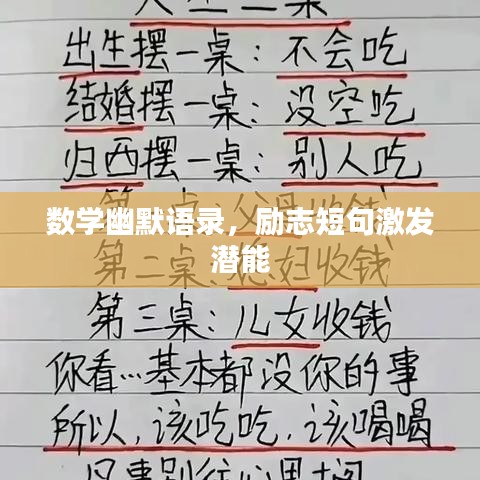 人生三桌
出生摆一桌:不会吃
结婚摆一桌:没空吃
归西摆一桌:别人吃
第一桌:父母收钱
数学幽默语录,励志短句激发
潜能
第二桌:媳妇收钱
第三桌:儿女收钱
你看…基本都没你的事
所以,该吃吃,该喝喝